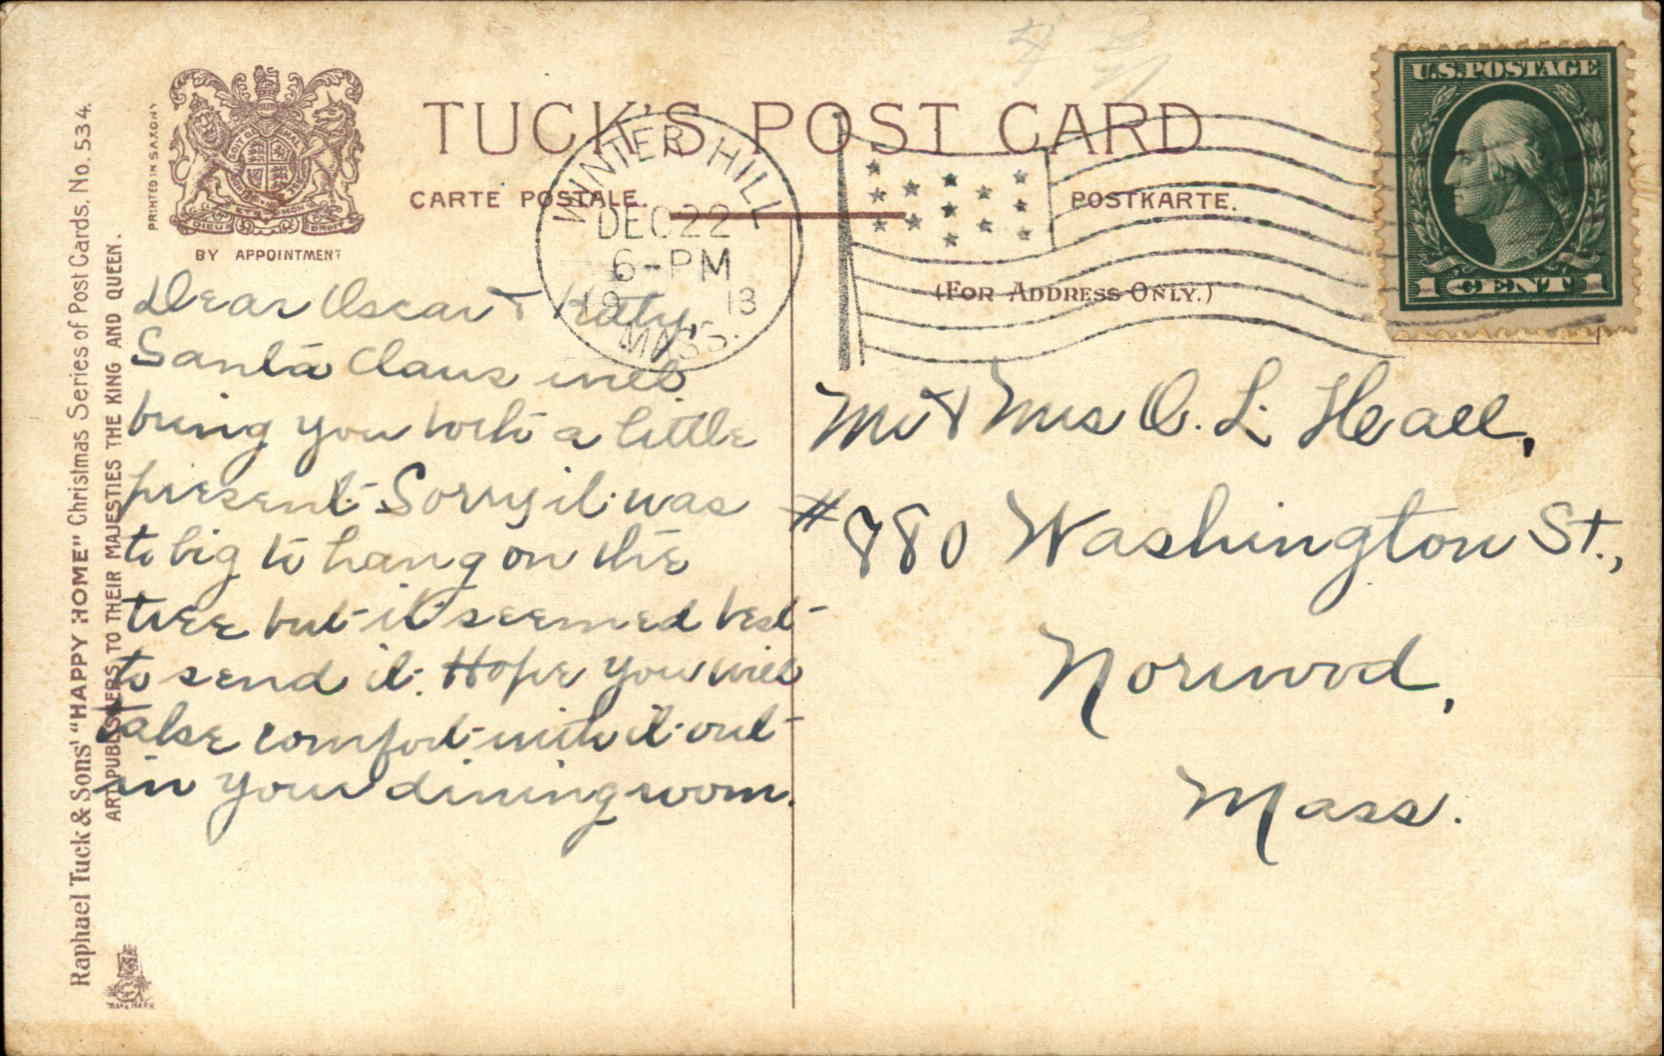 TUCK'S POST CARD
CARTE POSTALE.
POSTKARTE.
(FOR ADDRESS ONLY.)
BY APPOINTMENT
PRINTED IN SAXONY
Raphael Tuck & Sons' "HAPPY HOME" Christmas Series of Post Cards. No. 534.
ART PUBLISHERS TO THEIR MAJESTIES THE KING AND QUEEN.
WINTER HILL
DEC 22
6-PM
19 13
MASS.
U.S. POSTAGE
1 CENT 1
Dear Oscar & Katy,
Santa Claus will
bring you both a little
present. Sorry it was
to big to hang on the
tree but it seemed best
to send it. Hope you will
take comfort with it out
in your dining room.
Mr & Mrs O. L. Heall,
# 880 Washington St.,
Norwood,
Mass.